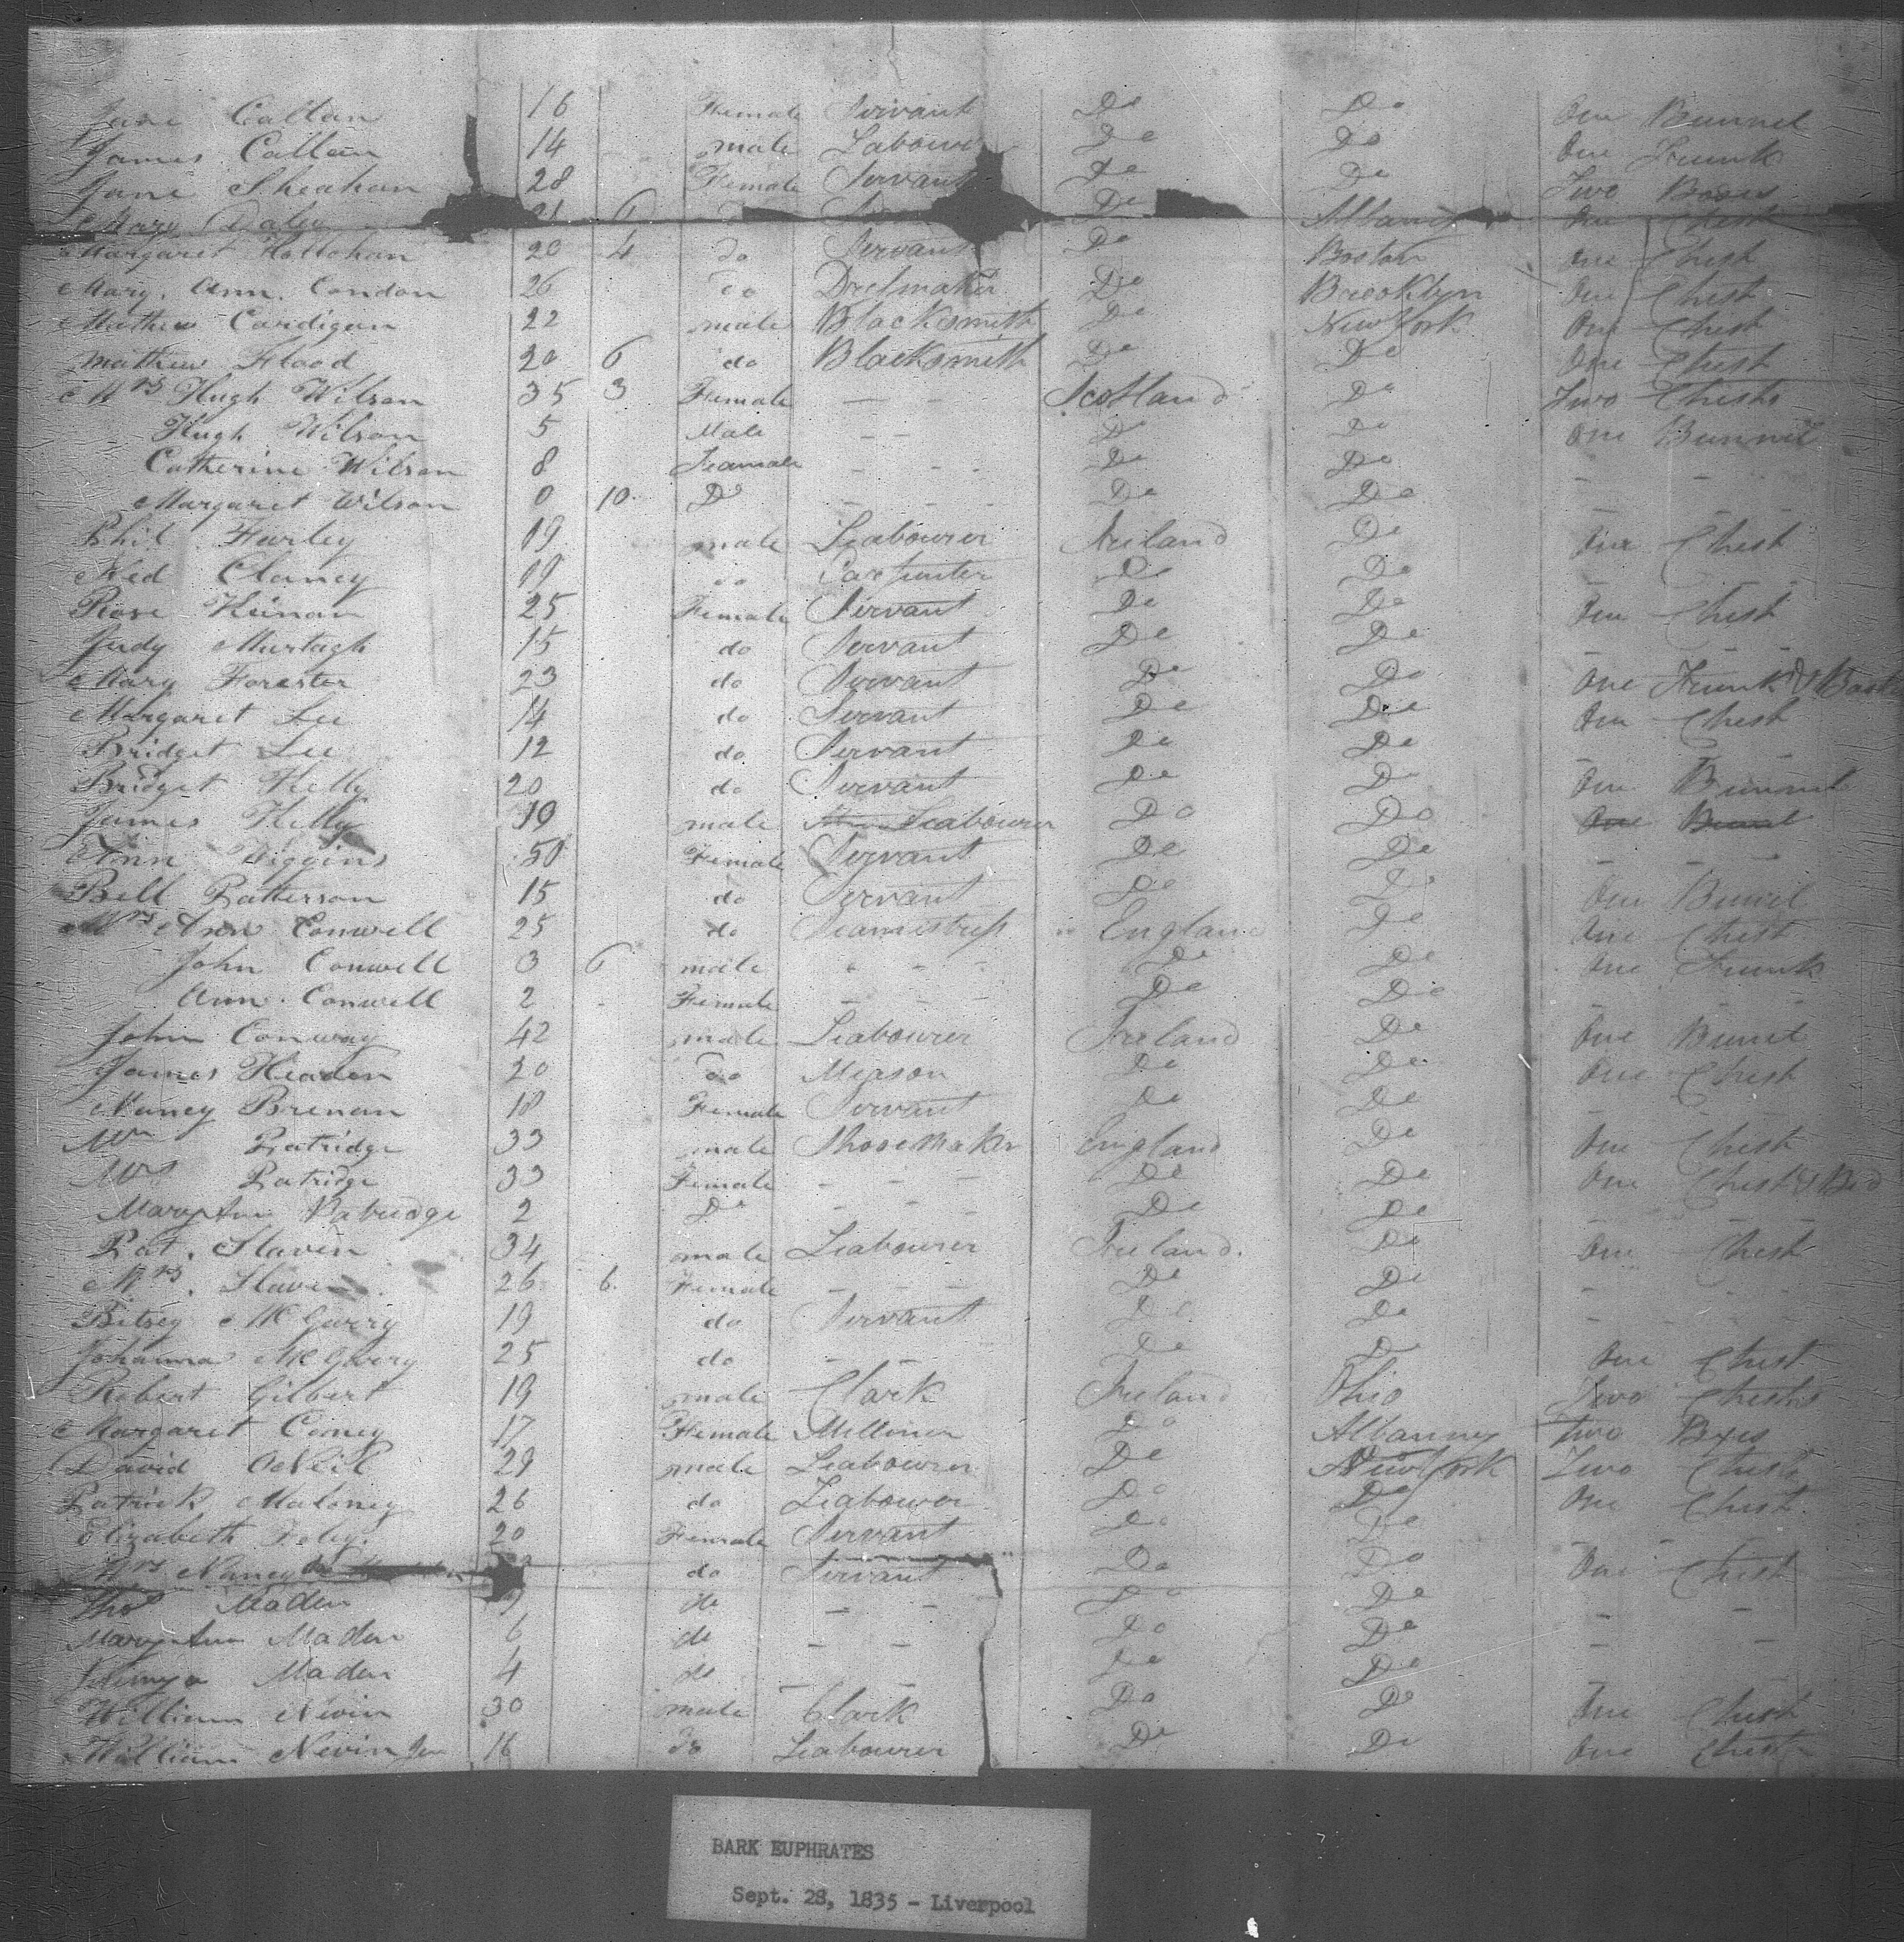 Jane Callan 16 Female Servant Do Do One Bunnel
James Callan 14 male Labourer Do Do One Trunk
Jane Sheahan 28 Female Servant Do Do Two Boxes
Mary Daley 21 6 Do Albany One Chest
Margaret Hollohan 20 4 do Servant Do Boston One Chest
Mary. Ann. Condon 26 do Dresmaker Do Brooklyn One Chest
Mathew Cardigan 22 male Blacksmith Do New York One Chest
Mathew Flood 20 6 do Blacksmith Do Do One Chest
Mrs Hugh Wilson 35 3 Female — — Scotland Do Two Chests
Hugh Wilson 5 Male — — Do Do One Bunnel
Catherine Wilson 8 Feamale - - - Do Do
Margaret Wilson 0 10 Do - - - Do Do - -
Phil. Farley 19 male Leabourer Ireland Do One Chest
Ned Clancy 19 do Carpenter Do Do - -
Rose 25 Female Servant Do Do One Chest
Judy Murtagh 15 do Servant Do Do - -
Mary Forester 23 do Servant Do Do One Trunk &
Margaret Lee 14 do Servant Do Do One Chest
Bridget Lee 12 do Servant Do Do - -
Bridget Kelly 20 do Servant Do Do One Bunnel
James Kelly 19 male Leabourer Do Do One
Ann Higgins 50 Female Servant Do Do - -
Bell Patterson 15 do Servant Do Do One Bunel
Mrs Ann Conwell 25 do Seamistress England Do One Chest
John Conwell 3 6 male - - Do Do One Trunk
Ann. Conwell 2 - Female - - - Do Do
John Conway 42 male Leabourer Ireland Do One Bunel
James Headen 20 do Meason Do Do One Chest
Nancy Brenan 18 Female Servant Do Do - -
Wm Patridge 33 male Shooemaker England Do One Chest
Mrs Patridge 33 Female - - - Do Do One Chest & Bed
Mary Ann Patridge 2 Do - - Do Do - -
Pat. Slavin 34 male Leabourer Ireland. Do One Chest
Mrs. Slavin 26 6 Female - - - Do Do - -
Bitsey McGarry 19 do Servant Do Do - -
Johanna 25 do - - Do Do One Chest
Robert Gilbert 19 male Clark Ireland Ohio Two Chests
Margaret Coney 17 Female Milliner Do Albanny Two Bxes
David ONeil 29 male Leabourer Do New York Two Chests
Patrick Maloney 26 do Leabourer Do Do One Chest
Elizabeth Foley. 20 Female Servant Do Do - -
Mrs Nancy do Servant Do Do One Chest
Thos Maden do — — Do Do
Mary Ann Maden 6 do — — Do Do - -
Maden 4 do — — Do Do
William Nevin 30 male Clark Do Do One Chest
William Nevin Jun 16 do Leabourer Do Do One Chest
BARK EUPHRATES
Sept. 28, 1835 - Liverpool